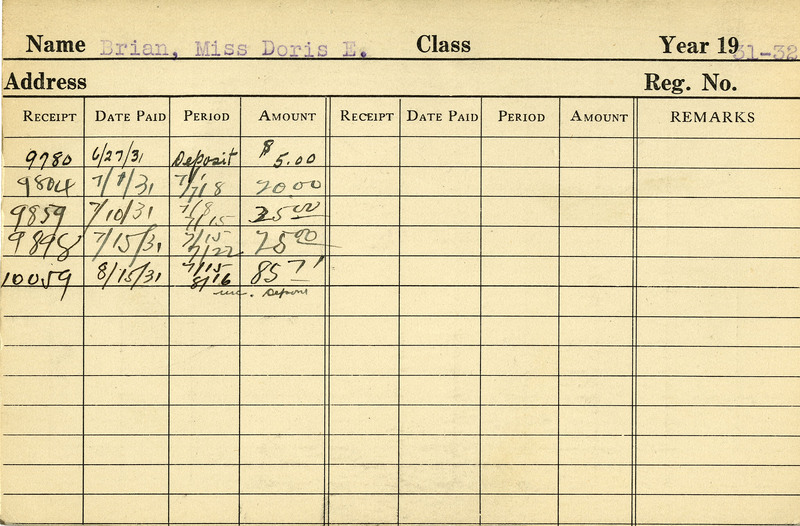 Name Brian, Miss Doris E. Class Year 1931-32
Address Reg. No.
RECEIPT DATE PAID PERIOD AMOUNT RECEIPT DATE PAID PERIOD AMOUNT REMARKS
9780 6/27/31 Deposit $5.00
9804 7/1/31 7/1 7/8 20.00
9859 7/10/31 7/8 7/15 25.00
9898 7/15/31 7/15 7/22 25.00
10059 8/15/31 7/15 8/16 85 71
inc. Deposit